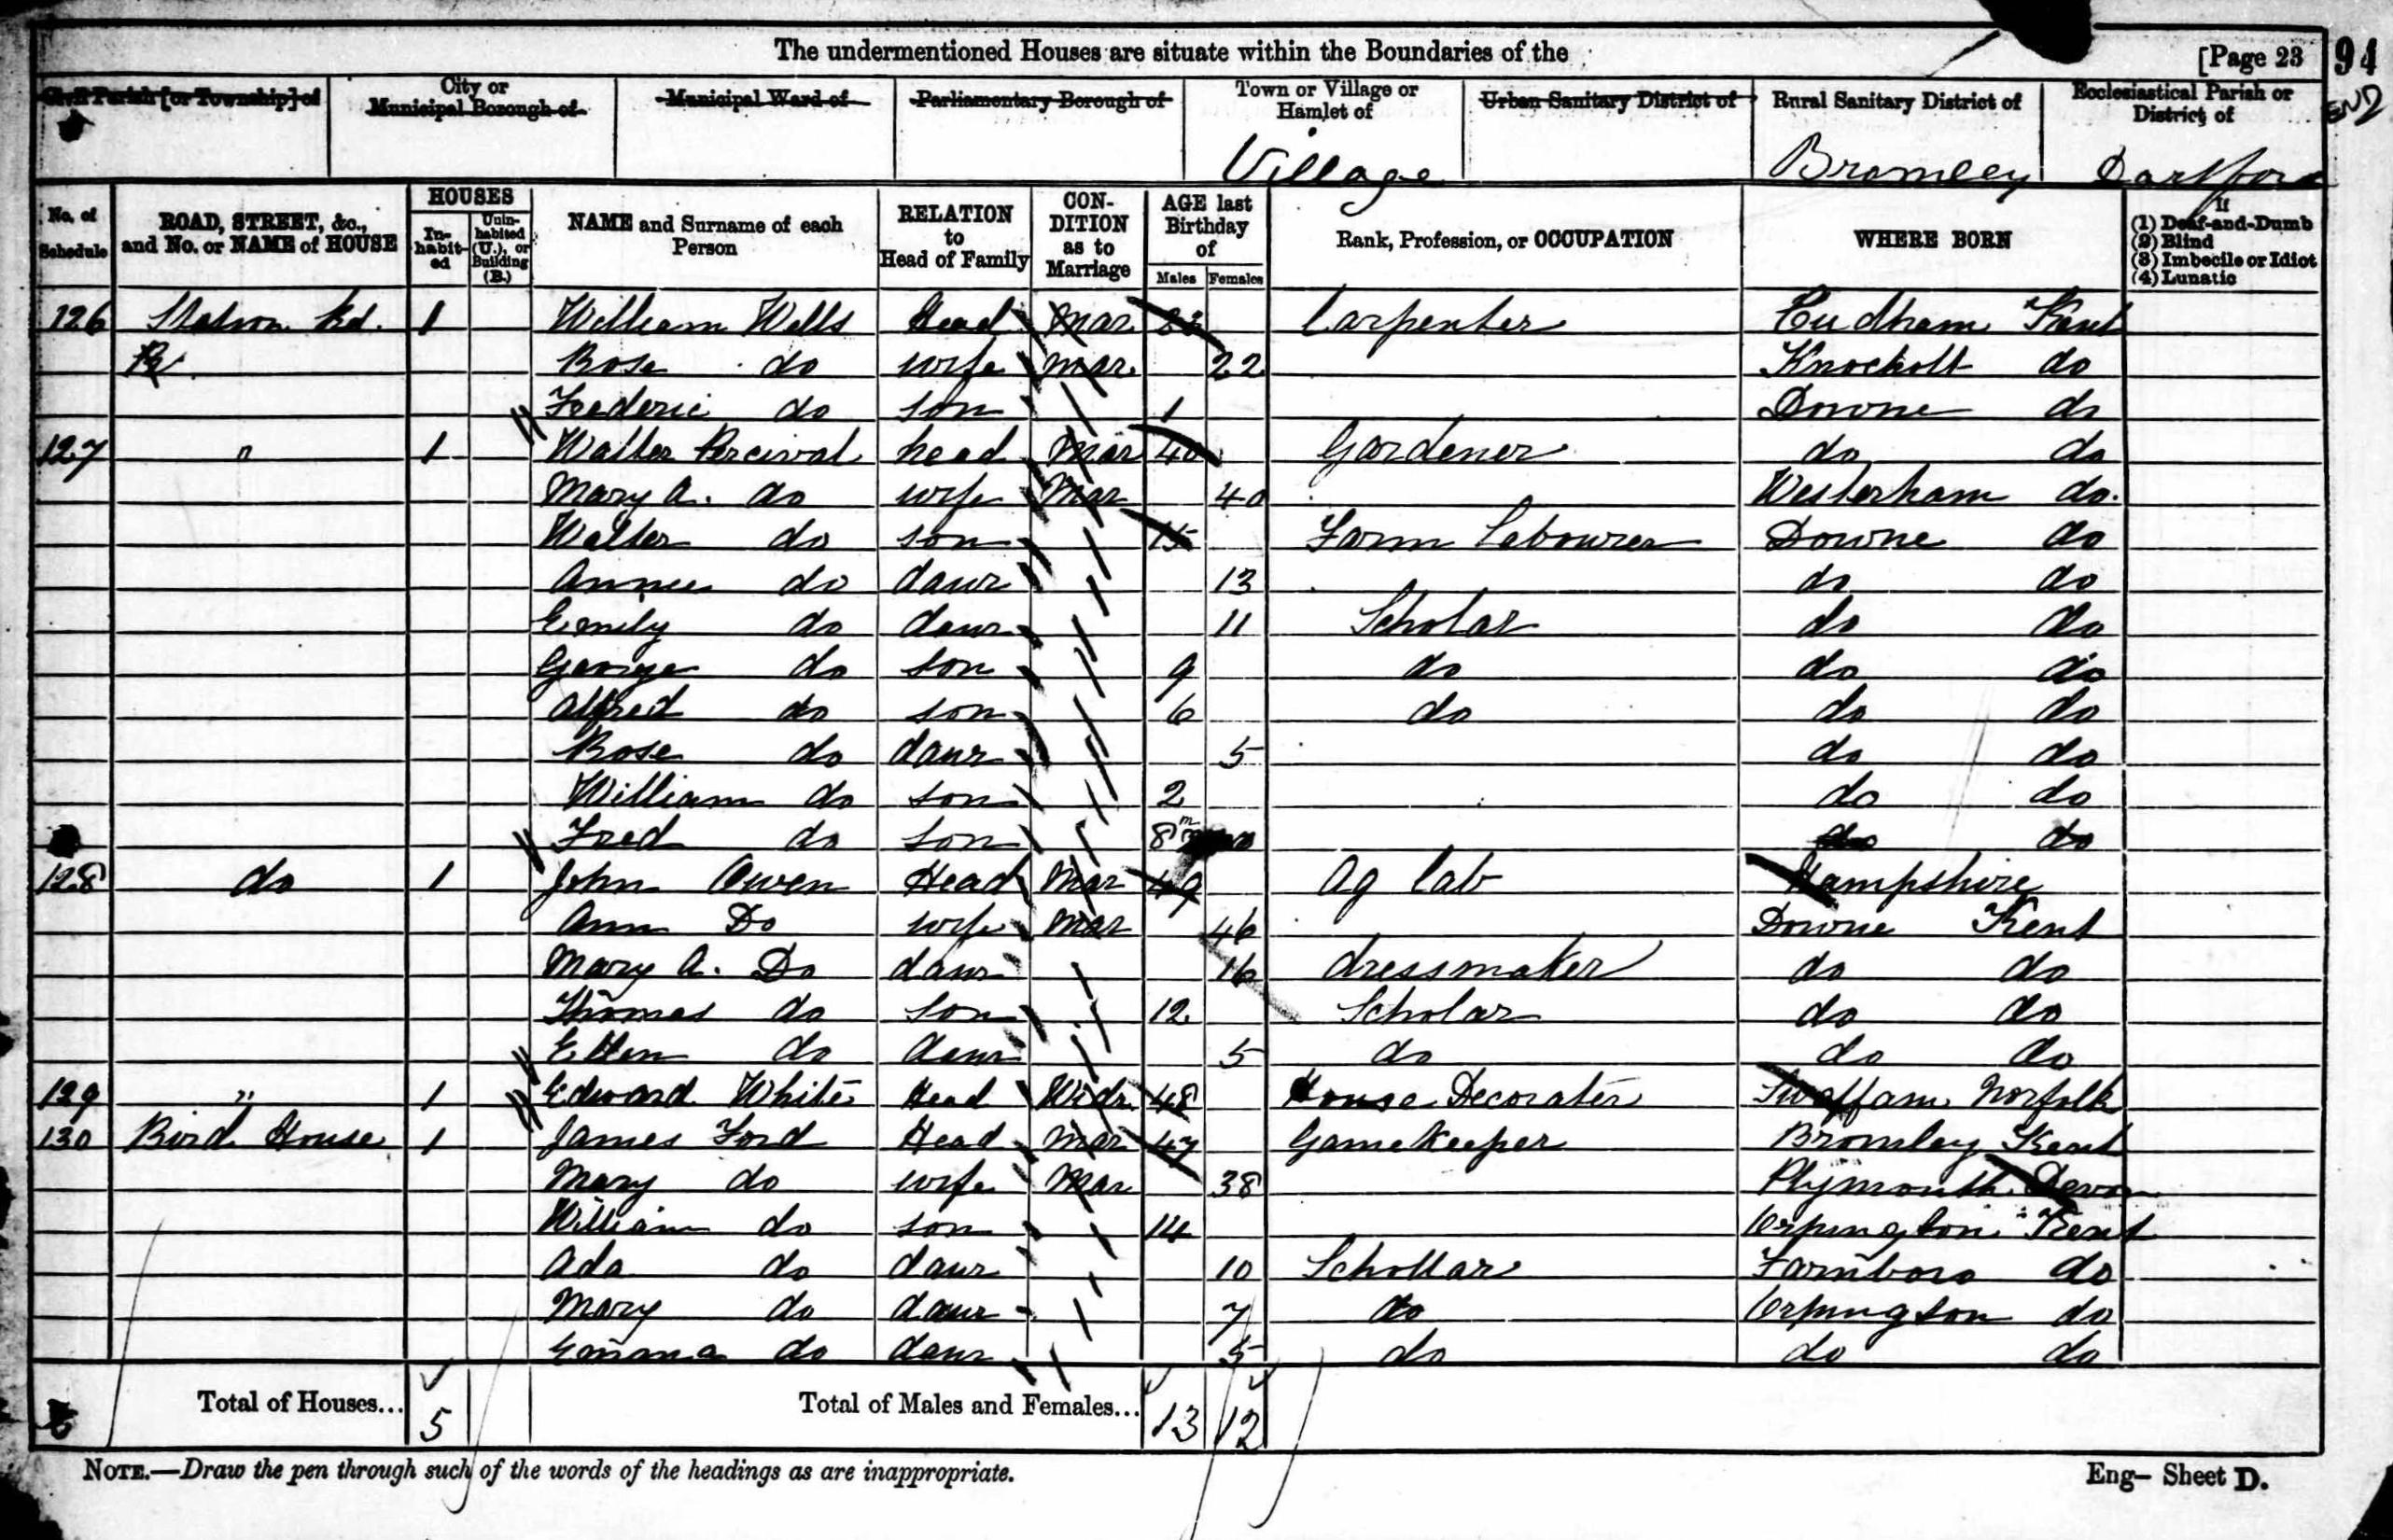 The undermentioned Houses are situate within the Boundaries of the [Page 23 94
Civil Parish [or Township] of City or Municipal Borough of Municipal Ward of Parliamentary Borough of Town or Village or Hamlet of Urban Sanitary District of Rural Sanitary District of Ecclesiastical Parish or District of END
Village Bromley Dartford
No. of Schedule ROAD, STREET, &c., and No. or NAME of HOUSE HOUSES Inhabited Uninhabited (U.), or Building (B.) NAME and Surname of each Person RELATION to Head of Family CONDITION as to Marriage AGE last Birthday of Males Females Rank, Profession, or OCCUPATION WHERE BORN If (1) Deaf-and-Dumb (2) Blind (3) Imbecile or Idiot (4) Lunatic
126 Rd. 1 William Wells Head Mar Carpenter Cudham Kent
Rose do wife mar. 22 Knockolt do
Frederic do son 1 Downe do
127 " 1 Walter Percival head Mar 40 Gardener do do
Mary A. do wife Mar 40 Westerham do.
Walter do son 15 Farm Labourer Downe do
Annie do daur 13 do do
Emily do daur 11 Scholar do do
George do son 9 do do do
Alfred do son 6 do do do
Rose do daur 5 do do
William do son 2 do do
Fred do son 8m do do
128 do 1 John Owen Head Mar 49 Ag Lab Hampshire
Ann Do wife Mar 46 Downe Kent
Mary A. Do daur 16 dressmaker do do
Thomas do son 12 Scholar do do
Ellen do daur 5 do do do
129 " 1 Edward White Head Widr. 48 House Decorater Swaffam Norfolk
130 Bird House 1 James Ford Head Mar 47 Gamekeeper Bromley Kent
Mary do wife Mar 38 Plymouth Devon
William do son 14 Orpington Kent
Ada do daur 10 Schollar Farnboro do
Mary do daur 7 do Orpington do
Emma do daur 5 do do do
Total of Houses... 5 Total of Males and Females... 13 12
NOTE.—Draw the pen through such of the words of the headings as are inappropriate. Eng— Sheet D.